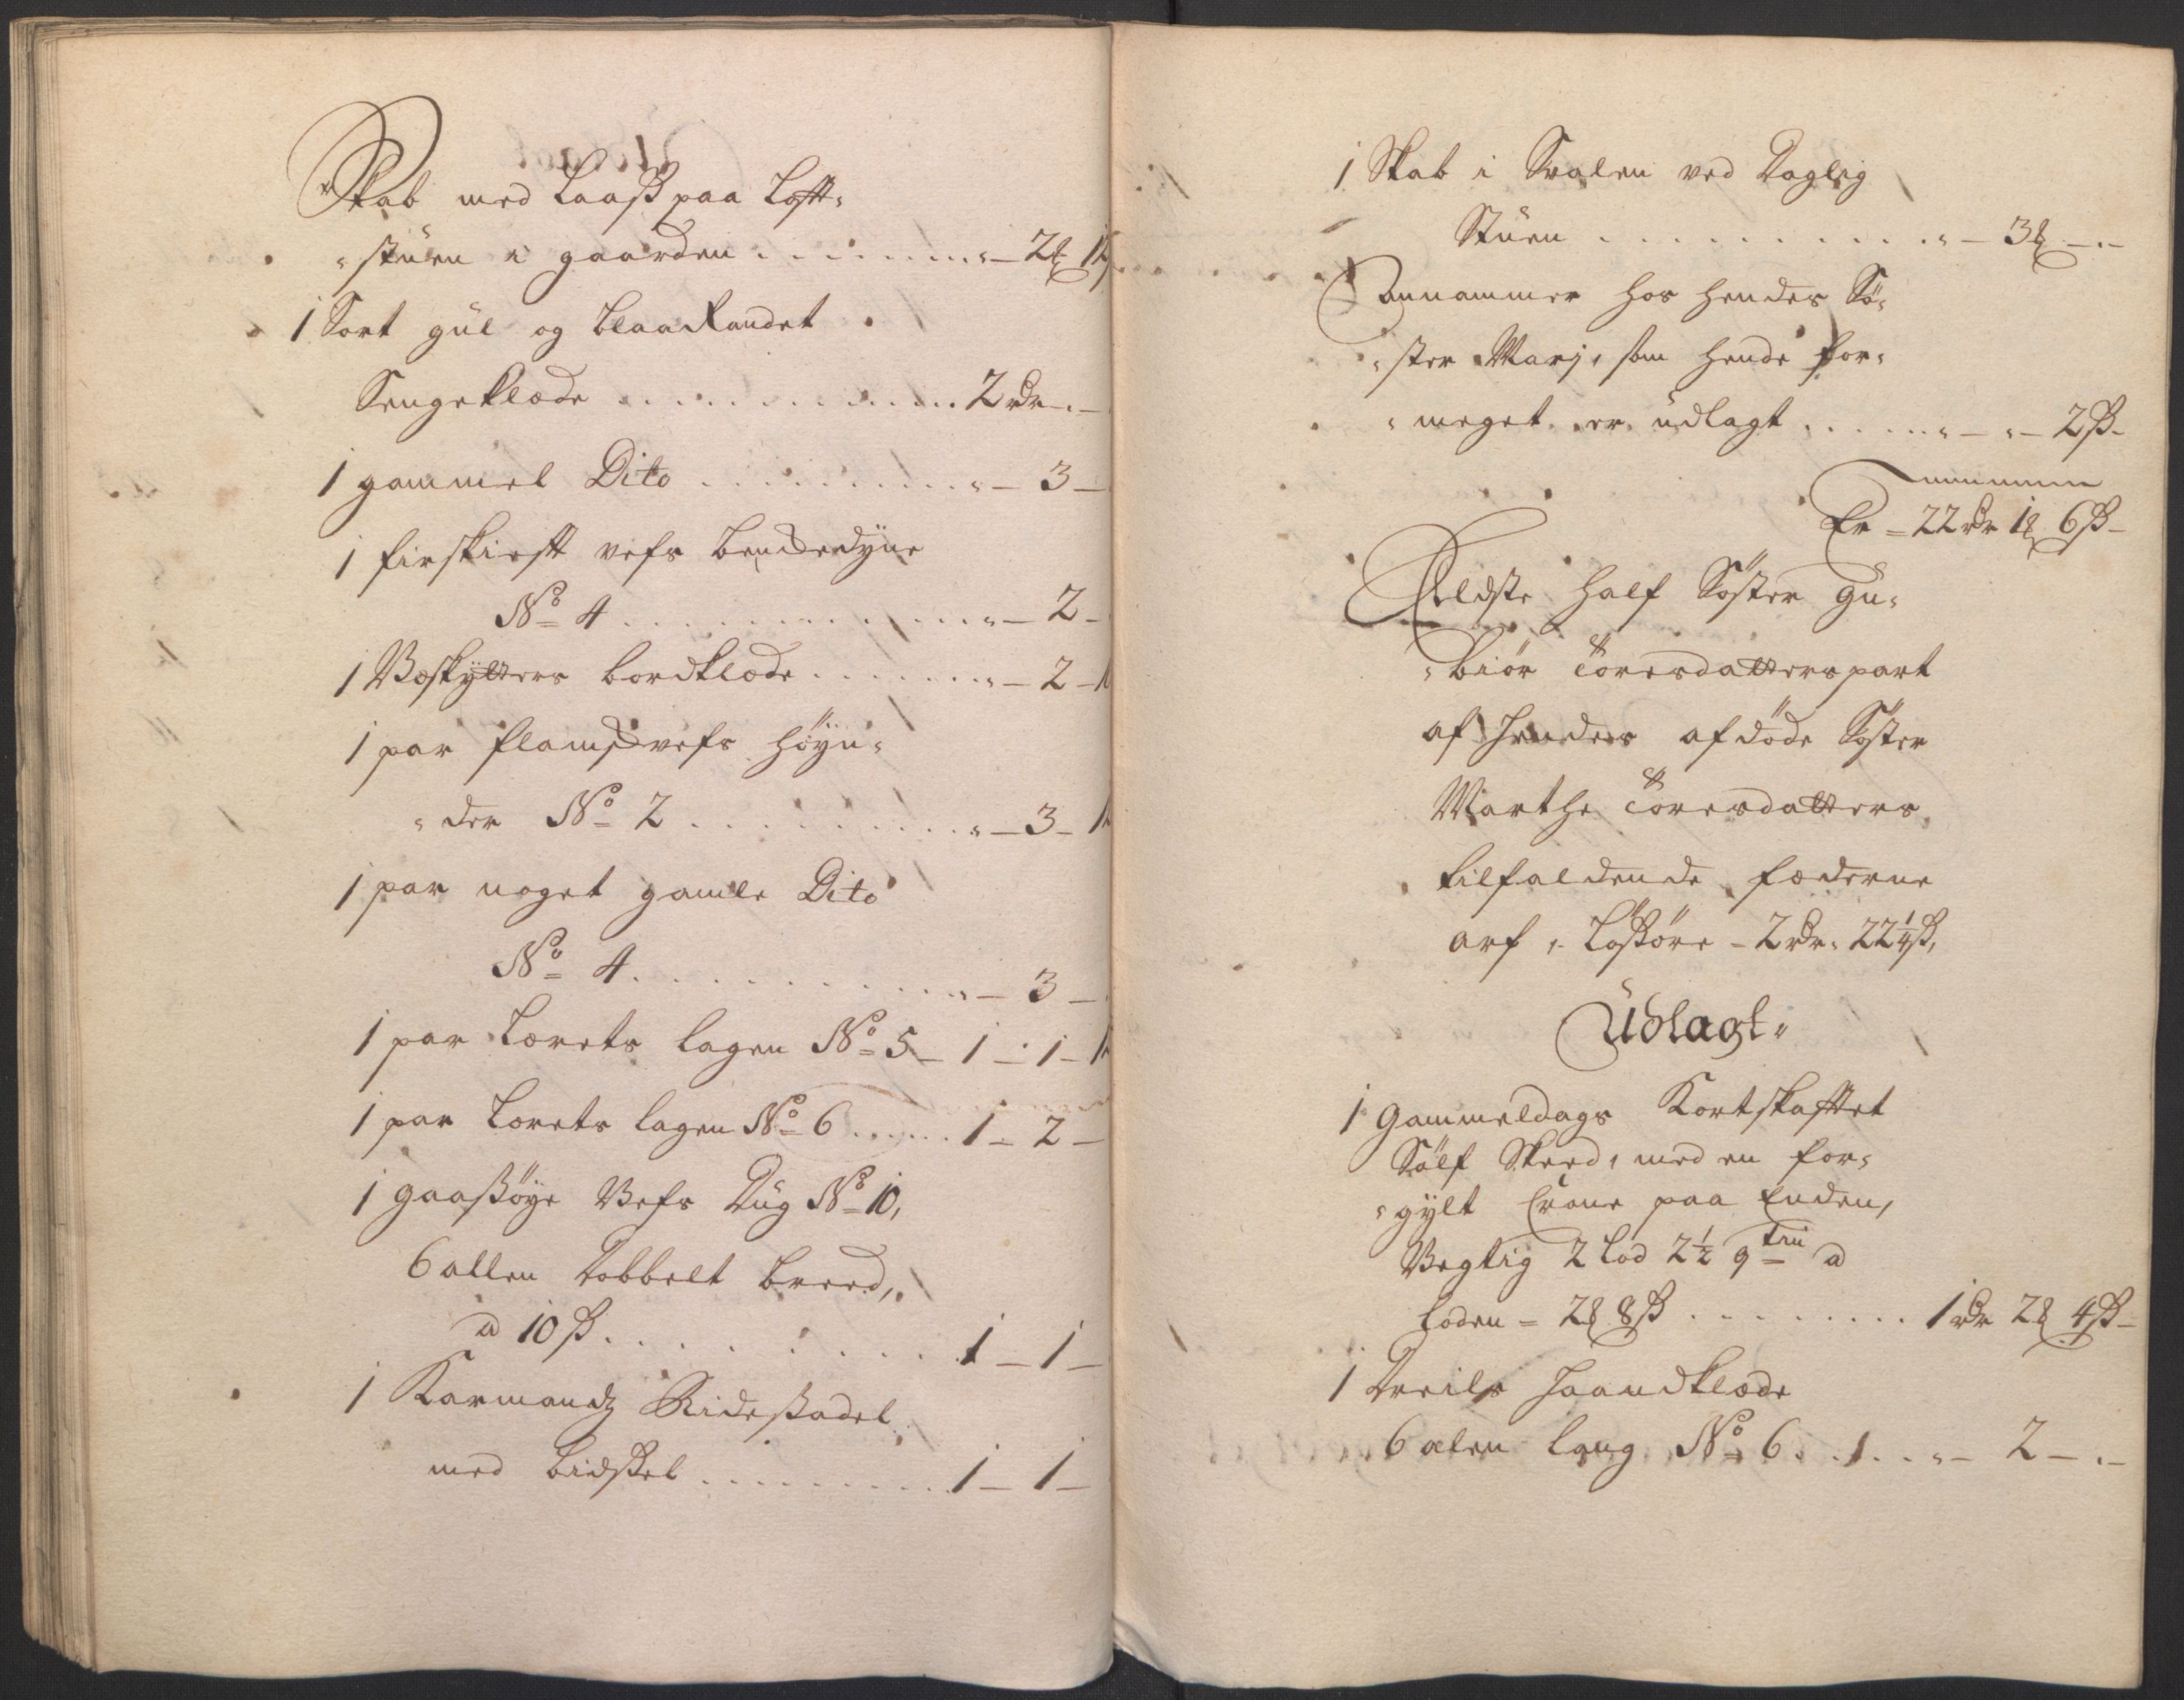 Skab med Laaß paa Loft-
"stuen i gaarden . . . . . . . "— 2
1 Sort gül og blaaRandet
Sengeklæde . . . . . . . . . . 2 rdr — . —
1 gammel Dito . . . . . . . . . . "— 3 —
1 firskieft vefs benckedyne
No 4 . . . . . . . . . . . . . "— 2 —
1 Bordklæde . . . . . . . "— 2 —
1 par flamskvefs Höÿn-
"der No 2 . . . . . . . . . . "— 3 —
1 par noget gamle Dito
No 4 . . . . . . . . . . . "— 3 —
1 par Lærets lagen No 5 — 1 — 1 —
1 par Lærets lagen No 6 . . . . . 1 — 2 —
1 gaasöÿe Vefs Dug No 10,
6 allen dobbelt breed,
a 10 ß . . . . . . . . . 1 — 1 —
1 Karmands Rideßadel
med bidßel . . . . . . . . . 1 — 1 —
1 Skab i Svalen ved Daglig
Stüen . . . . . . . . . . . "— 3 — . —
Annammer hos hendes Sö-
"ster Marj, som hende for-
"meget er udlagt . . . . . . "— "— 2 ß —
Er = 22 rdr 1 6 ß —
Ældste half Söster Gu-
"biör Toresdatters part
af hendes afdöde Söster
Marthe Toresdatters
tilfaldende fæderne
arf i Lößöre — 2 rdr 22 1/4 ß,
Udlagt
1 Gammeldags Kortskafftet
Sölf Skeed, med en for-
"gylt Crone paa Enden,
Vegtig 2 lod 2 1/2 qtin a
Loden = 2 8 ß . . . . . . . . . 1 rdr 2 4 ß —
1 Dreils Haandklæde
6 alen lang No 6 . . 1 . . "— 2 — . —